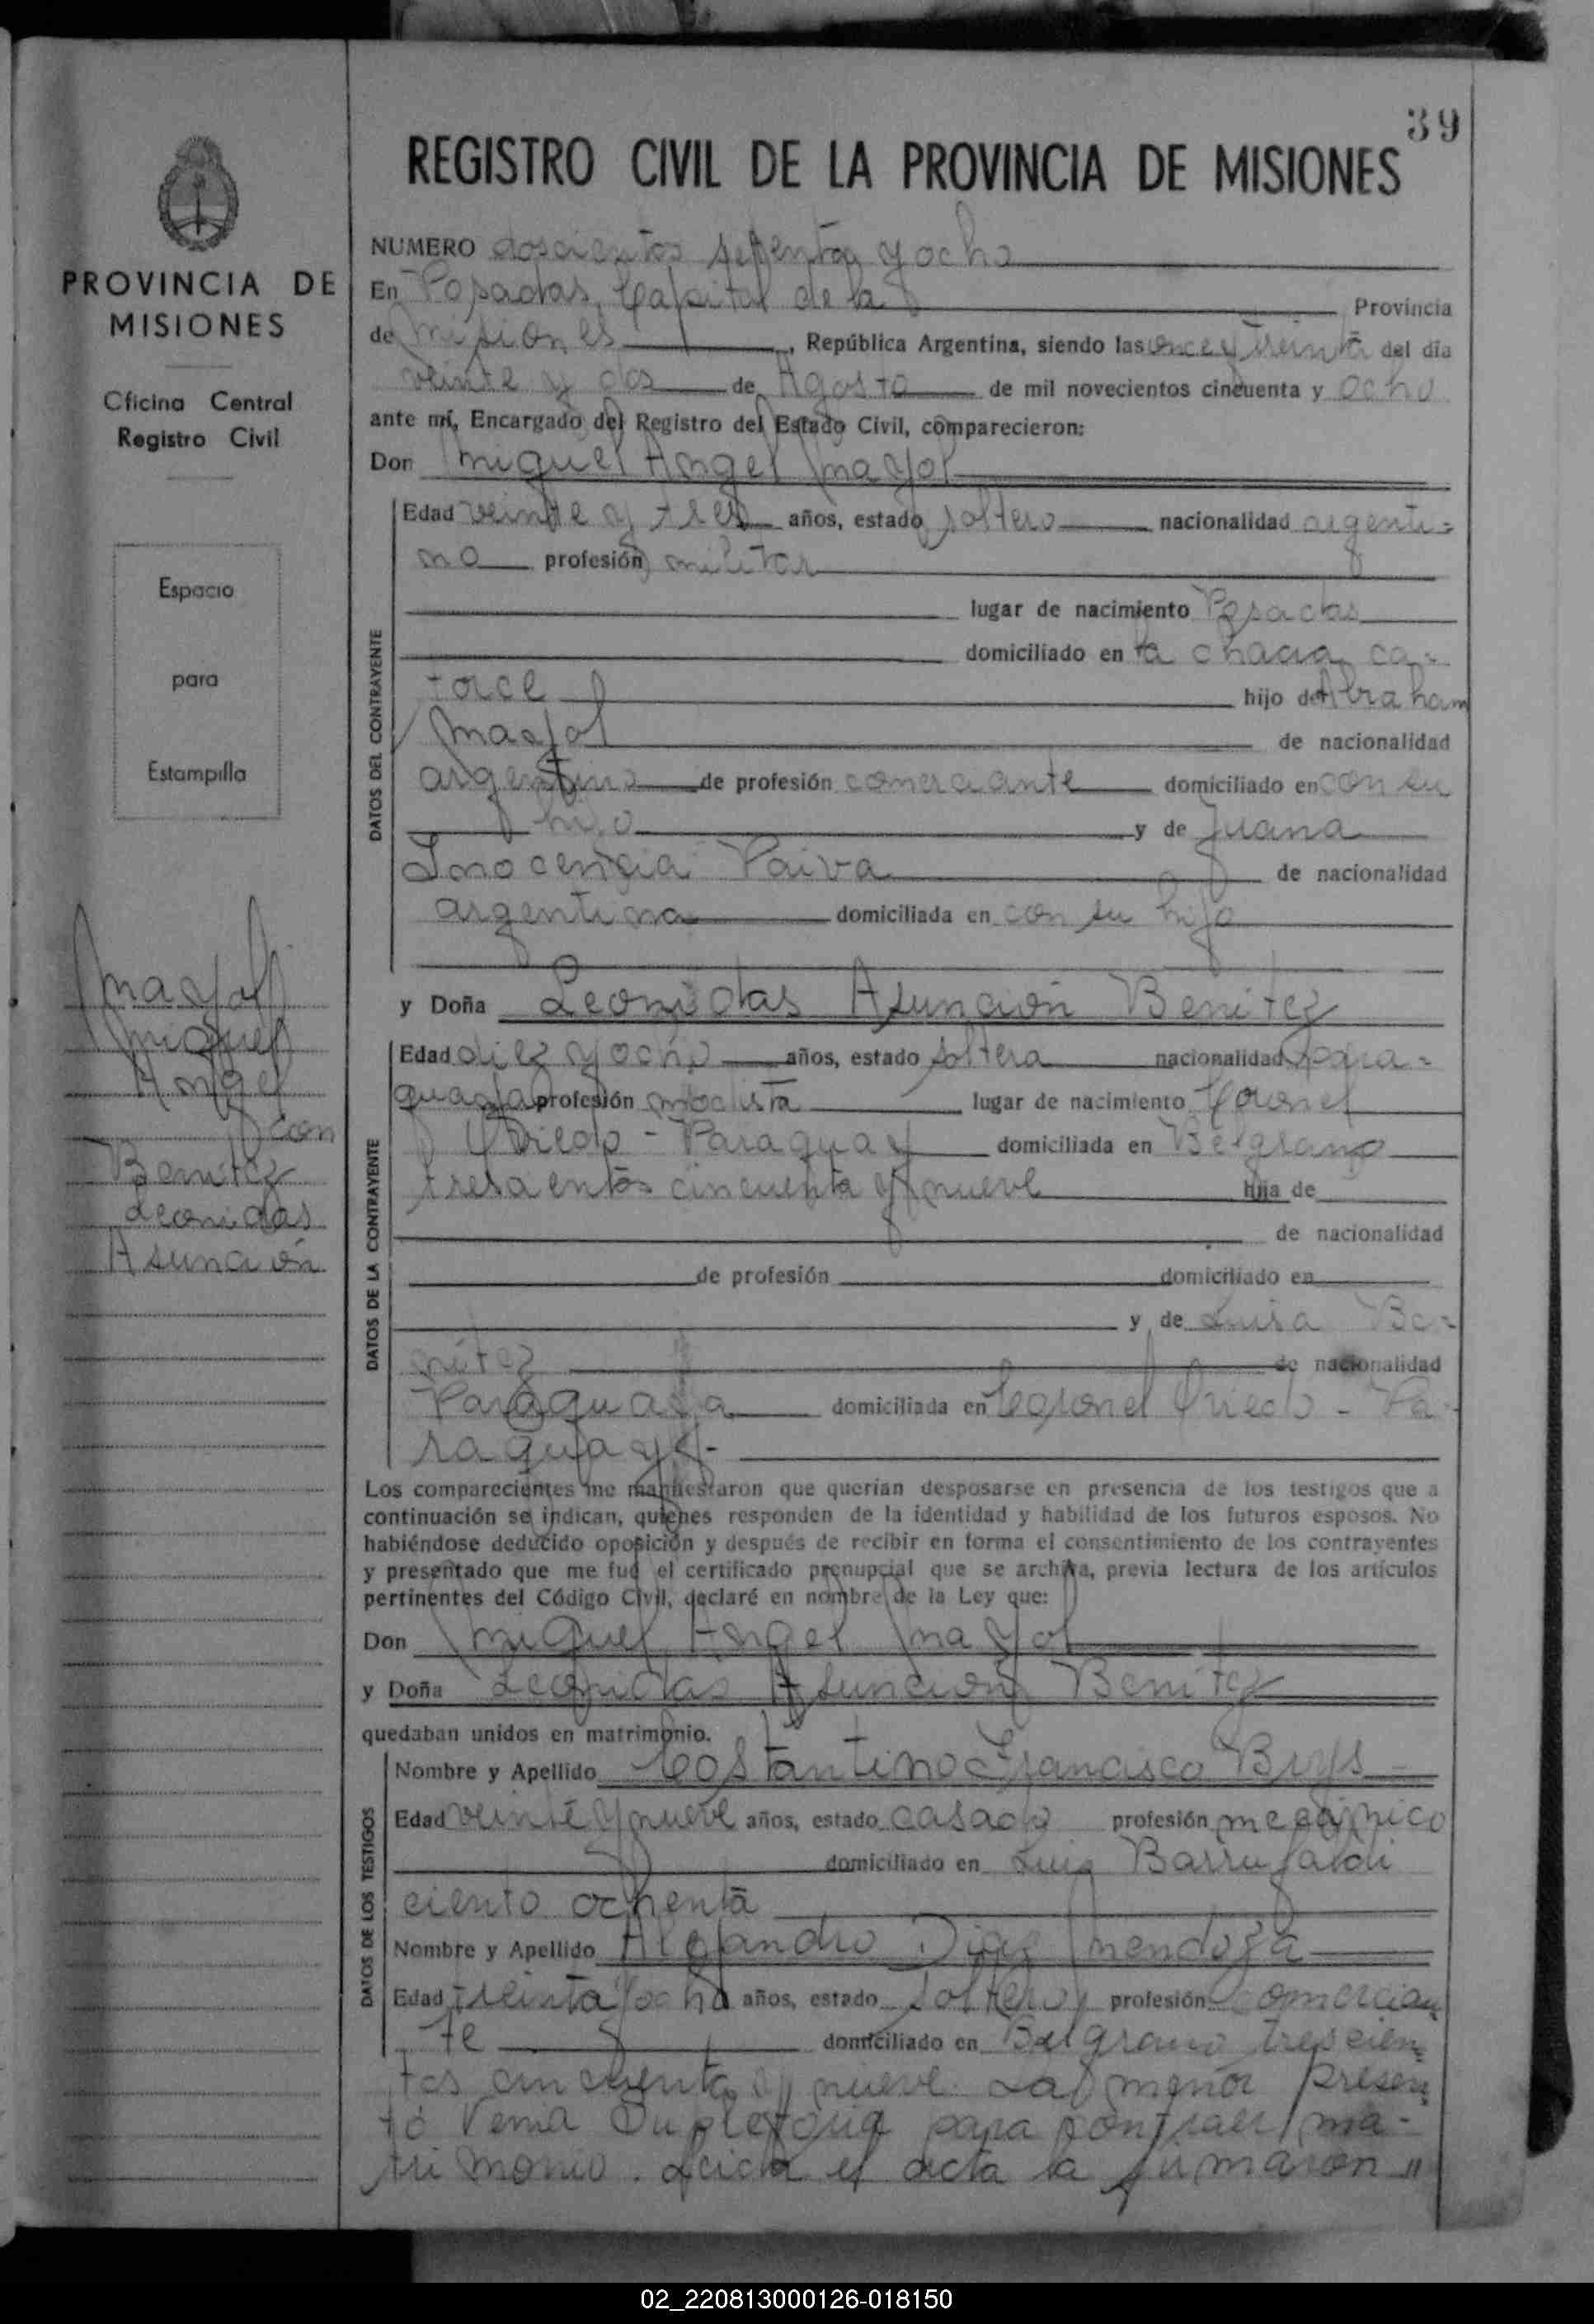 39
REGISTRO CIVIL DE LA PROVINCIA DE MISIONES
PROVINCIA DE
MISIONES
Oficina Central
Registro Civil
Espacio
para
Estampilla
Mayol
Miguel
Angel
con
Benitez
Leonidas
Asunción
NUMERO doscientos setenta y ocho
En Posadas, Capital de la Provincia
de Misiones, República Argentina, siendo las once y treinta del día
veinte y dos de Agosto de mil novecientos cincuenta y ocho
ante mí, Encargado del Registro del Estado Civil, comparecieron:
Don Miguel Angel Mayol
DATOS DEL CONTRAYENTE
Edad veinte y tres años, estado soltero nacionalidad argenti=
no profesión militar
lugar de nacimiento Posadas
domiciliado en la chacra ca=
torce hijo de Abraham
Mayol de nacionalidad
argentino de profesión comerciante domiciliado en con su
hijo y de Juana
Inocencia Paiva de nacionalidad
argentina domiciliada en con su hijo
y Doña Leonidas Asunción Benitez
DATOS DE LA CONTRAYENTE
Edad diez y ocho años, estado soltera nacionalidad para=
guaya profesión modista lugar de nacimiento Coronel
Oviedo - Paraguay domiciliada en Belgrano
trescientos cincuenta y nueve hija de
de nacionalidad
de profesión domiciliado en
y de Luisa Be=
nitez de nacionalidad
Paraguaya domiciliada en Coronel Oviedo - Pa-
raguay.-
Los comparecientes me manifestaron que querían desposarse en presencia de los testigos que a
continuación se indican, quienes responden de la identidad y habilidad de los futuros esposos. No
habiéndose deducido oposición y después de recibir en forma el consentimiento de los contrayentes
y presentado que me fué el certificado prenupcial que se archiva, previa lectura de los artículos
pertinentes del Código Civil, declaré en nombre de la Ley que:
Don Miguel Angel Mayol
y Doña Leonidas Asunción Benitez
quedaban unidos en matrimonio.
DATOS DE LOS TESTIGOS
Nombre y Apellido Costantino Francisco Brys
Edad veinte y nueve años, estado casado profesión mecánico
domiciliado en Luis Barrufaldi
ciento ochenta
Nombre y Apellido Alejandro Diaz Mendoza
Edad treinta y ocho años, estado soltero profesión Comercian=
te domiciliado en Belgrano trescien=
tos cincuenta y nueve. La menor presen=
tó Venia Supletoria para contraer ma-
trimonio. Leida el acta la firmaron "
02_220813000126-018150